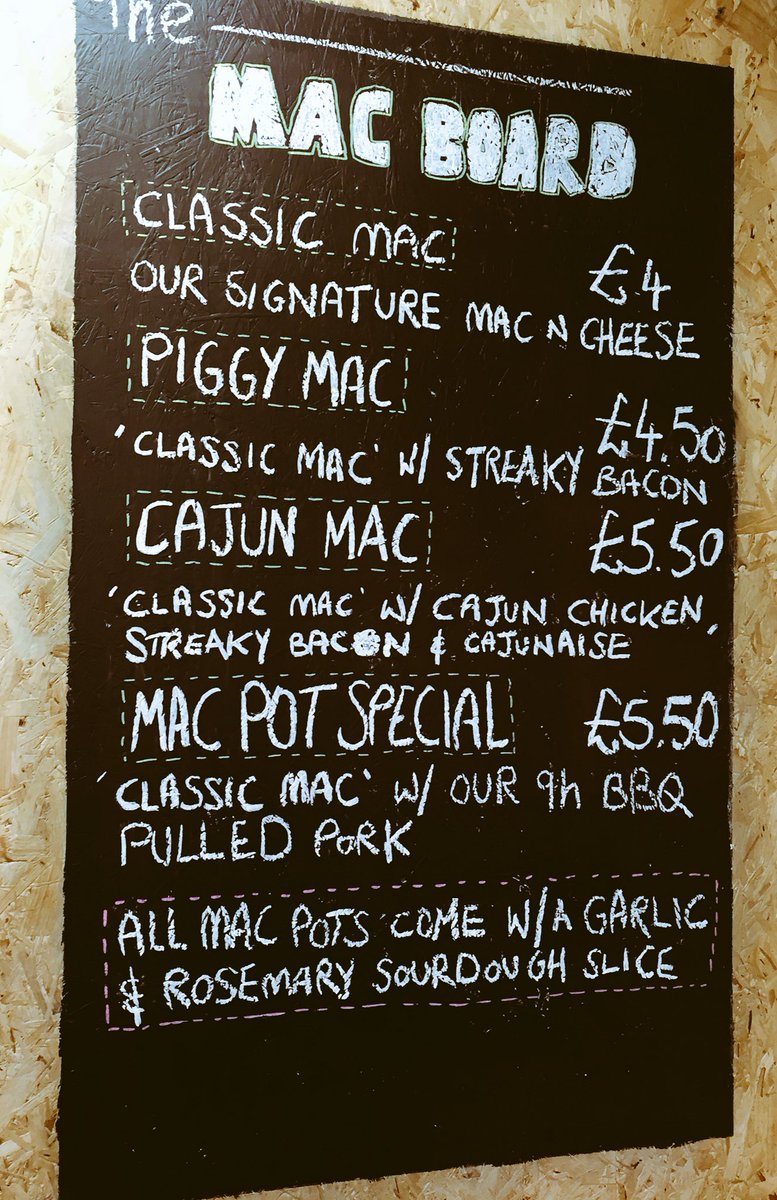 The
MAC BOARD
CLASSIC MAC £4
OUR SIGNATURE MAC N CHEESE
PIGGY MAC £4.50
'CLASSIC MAC' W/ STREAKY BACON
CAJUN MAC £5.50
'CLASSIC MAC' W/ CAJUN CHICKEN,
STREAKY BACON & CAJUNAISE
MAC POT SPECIAL £5.50
'CLASSIC MAC' W/ OUR 9h BBQ
PULLED PORK
ALL MAC POTS COME W/A GARLIC
& ROSEMARY SOURDOUGH SLICE